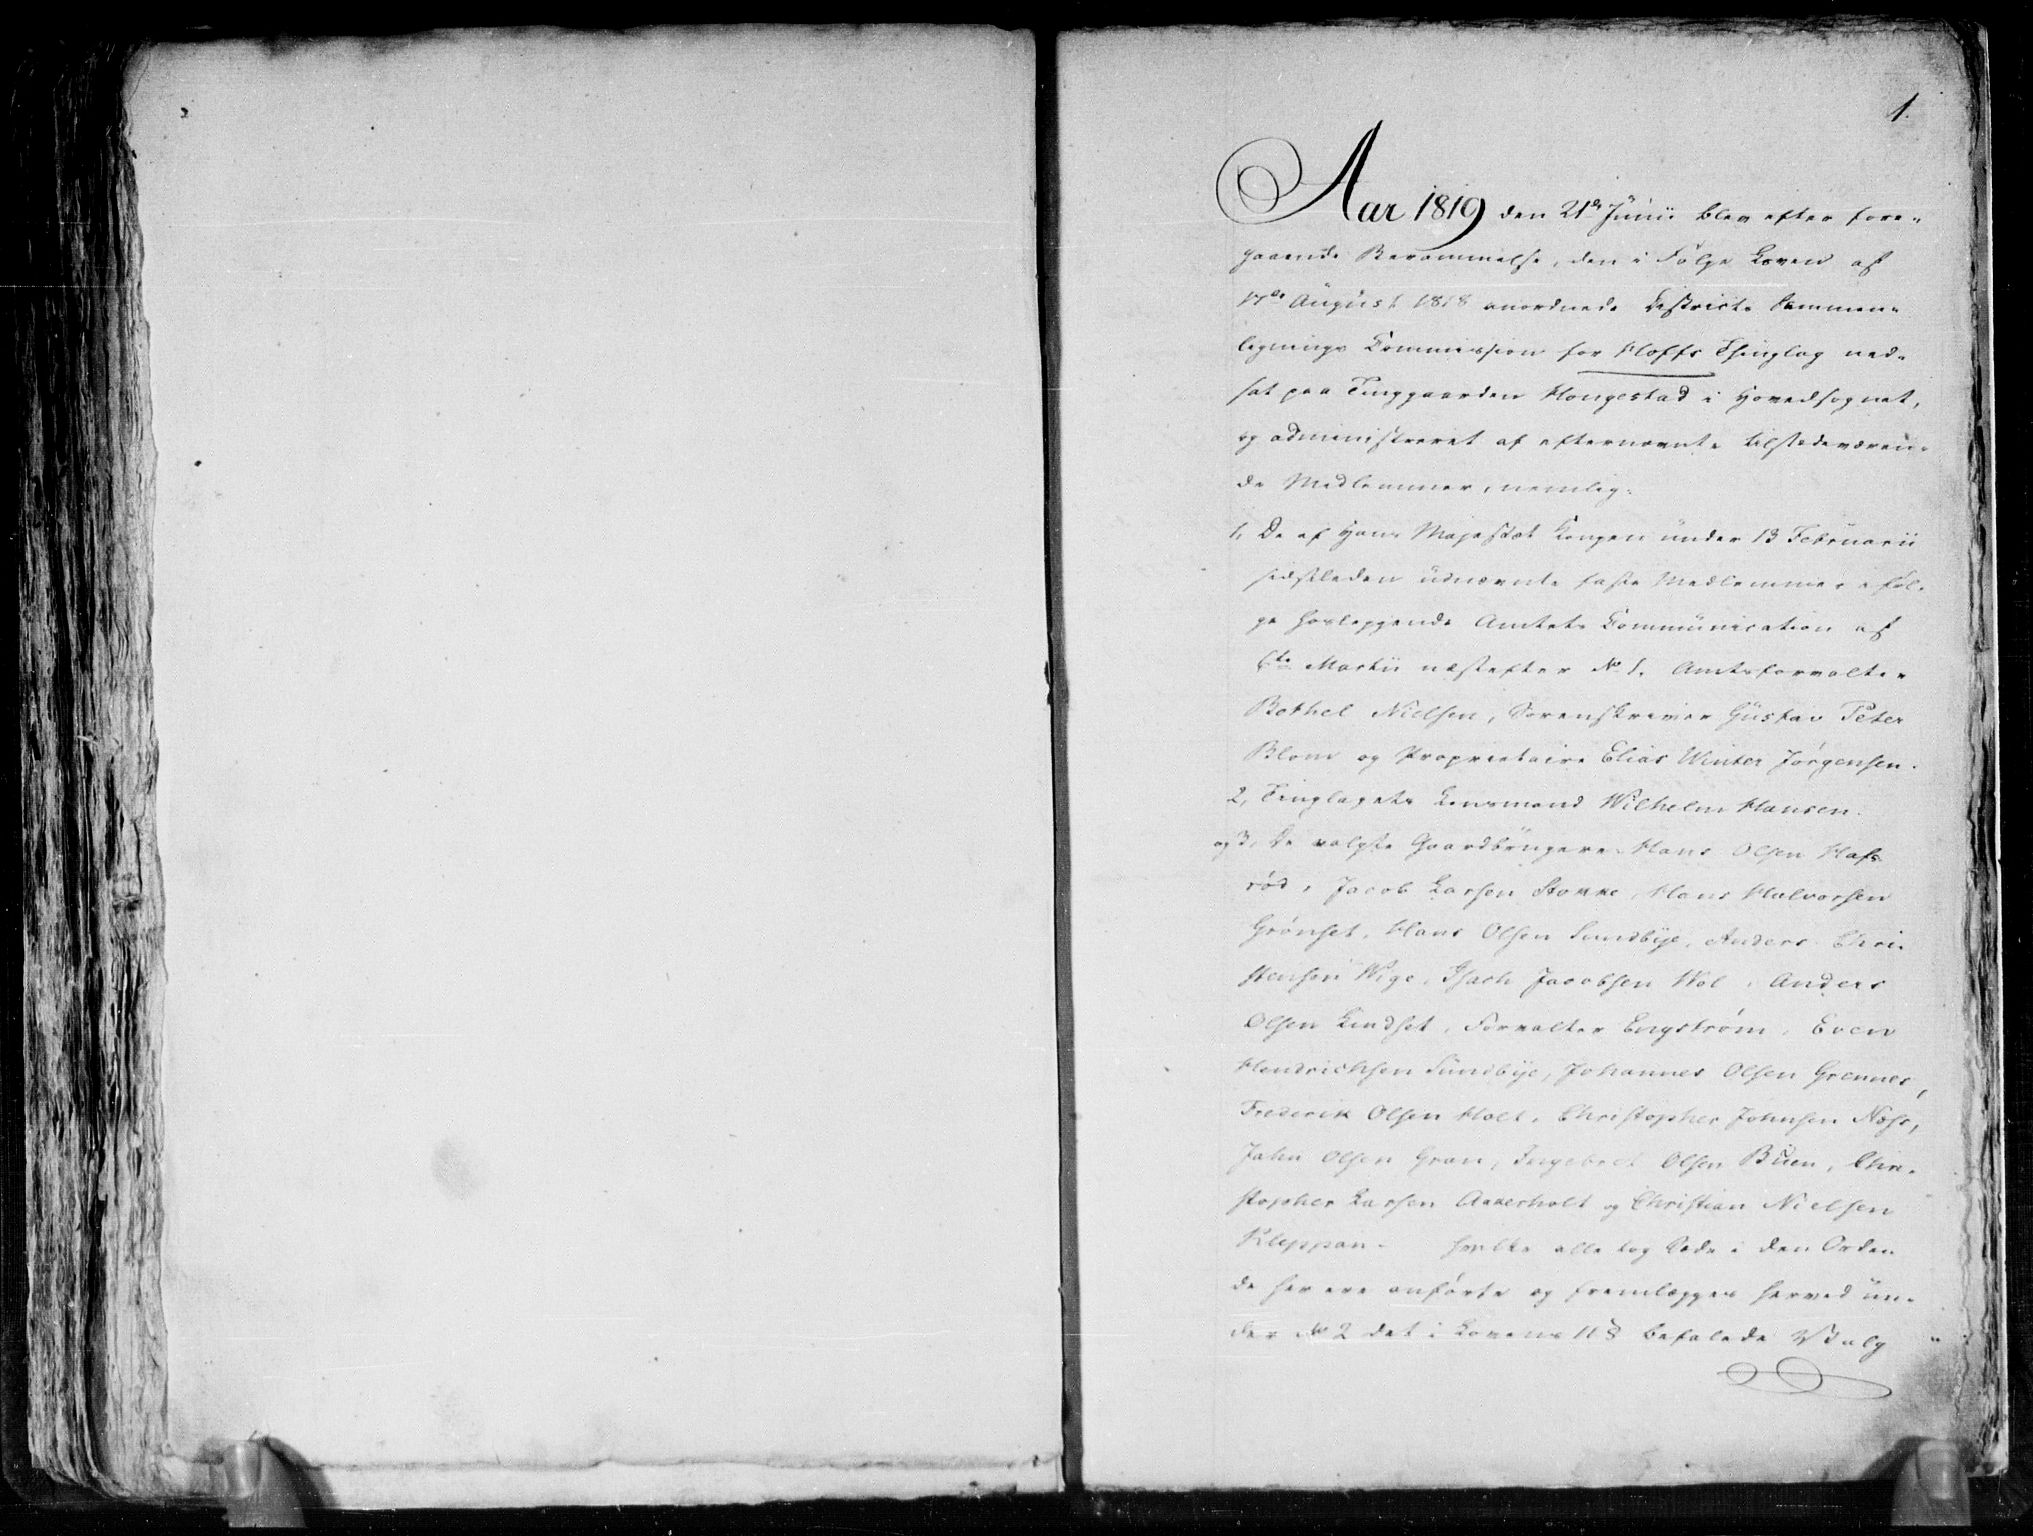 1.
Aar 1819 den 21de Junii blev efter fore-
gaaende Berammelse, den i Følge Loven af
17de August 1818 anordnede Districts Sammen-
lignings Commission for Hoffs Thinglag ned-
sat paa Tinggaarden Hongestad i Hovedsognet,
og administreret af efternævnte tilstedeværen-
de Medlemmer, nemlig:
1, De af Hans Majestæt Kongen under 13 Februarii
sidstleden udnævnte faste Medlemmer eføl-
ge hoslæggende Amtets Communication af
6te Martii næstefter No 1. Amtsforvalter
Bothel Nielsen, Sorenskriver Güstav Peter
Blom og Proprietaire Elias Winter Jørgensen.
2, Tinglagets Lensmand Wilhelm Hansen.
og 3, De valgte Gaardbrugere Hans Olsen Hafs-
rød, Jacob Larsen Horne, Hans Halvorsen
Grønset, Hans Olsen Sundbye, Anders Chri-
stensen Wige, Isach Jacobsen Wol, Anders
Olsen Lindset, Forvalter Engstrøm, Even
Hendrichsen Sündbye, Johannes Olsen Grennes,
Frederik Olsen Holt, Christopher Johnsen Næss,
John Olsen Gran, Ingebret Olsen Buen, Chri-
stopher Larsen Aanerholt og Christian Nielsen
Kleppan - hvilke alle tog Sæde i den Orden
de her ere anførte og fremlægges herved un-
der No 2 det i Lovens 11 § befalede Valg